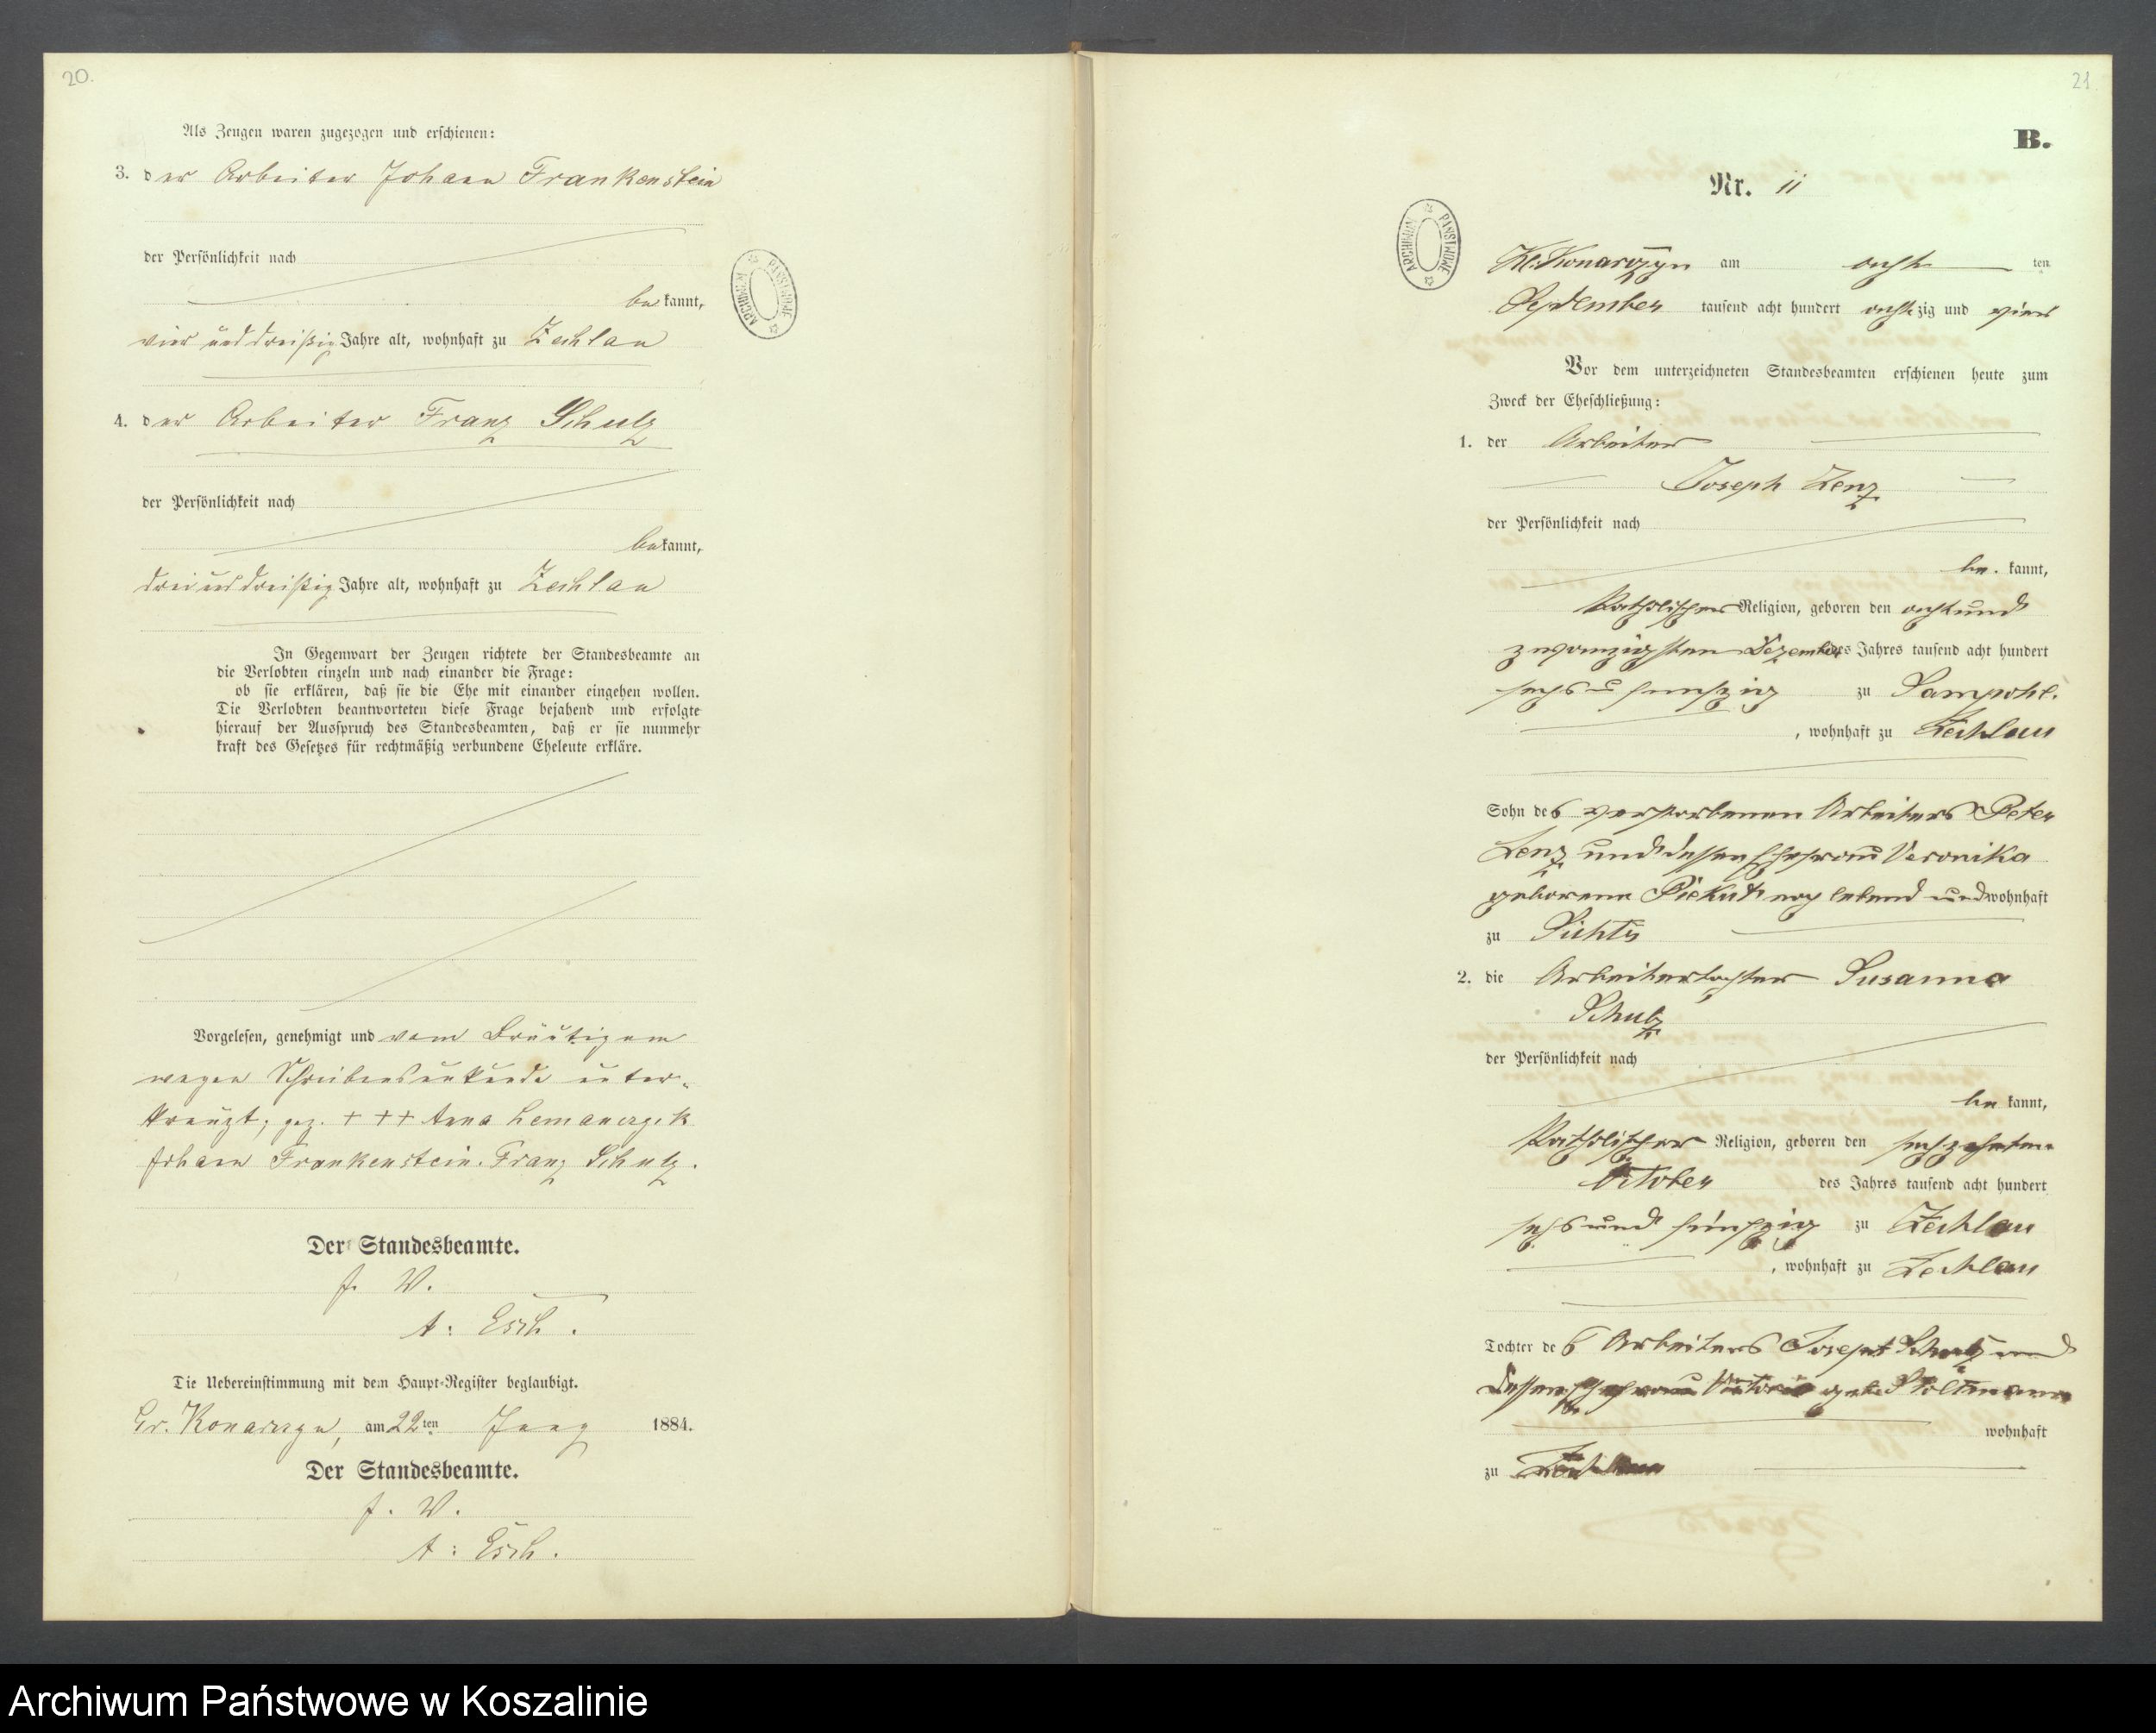 20.
Als Zeugen waren zugezogen und erschienen:
3. der Arbeiter Johann Frankenstein
der Persönlichkeit nach
be kannt,
vier und dreißig Jahre alt, wohnhaft zu Zechlau
4. der Arbeiter Franz Schulz
der Persönlichkeit nach
bekannt,
drei und dreißig Jahre alt, wohnhaft zu Zechlau
In Gegenwart der Zeugen richtete der Standesbeamte an
die Verlobten einzeln und nach einander die Frage:
ob sie erklären, daß sie die Ehe mit einander eingehen wollen.
Die Verlobten beantworteten diese Frage bejahend und erfolgte
hierauf der Ausspruch des Standesbeamten, daß er sie nunmehr
kraft des Gesetzes für rechtmäßig verbundene Eheleute erkläre.
Vorgelesen, genehmigt und vom Bräutigam
wegen Schreibensunkunde unter-
kreuzt; gez. + + + Anna Lemanczyk
Johann Frankenstein. Franz Schulz.
Der Standesbeamte.
J. V.
A: Esch.
Die Uebereinstimmung mit dem Haupt-Register beglaubigt.
Gr. Konarczyn, am 22ten 1884.
Der Standesbeamte.
J. V.
A: Esch.
ARCHIWUM PAŃSTWOWE
21.
B.
Nr. 11
ARCHIWUM PAŃSTWOWE
Kl. Konarczyn am acht ten
September tausend acht hundert achtzig und vier
Vor dem unterzeichneten Standesbeamten erschienen heute zum
Zweck der Eheschließung:
1. der Arbeiter
Joseph Lenz
der Persönlichkeit nach
be kannt,
katholischer Religion, geboren den acht und
zwanzigsten Dezember des Jahres tausend acht hundert
sechs u fünfzig zu Sampohl.
, wohnhaft zu Zechlau
Sohn des verstorbenen Arbeiters Peter
Lenz und dessen Ehefrau Veronika
geborene Piekut noch lebend und wohnhaft
zu Sichts
2. die Arbeitertochter Susanna
Schulz
der Persönlichkeit nach
be kannt,
katholischer Religion, geboren den sechszehnten
October des Jahres tausend acht hundert
sechs und fünfzig zu Zechlau
, wohnhaft zu Zechlau
Tochter des Arbeiters Joseph Schulz und
dessen Ehefrau geb. Stoltmann
wohnhaft
zu Zechlau
Archiwum Państwowe w Koszalinie